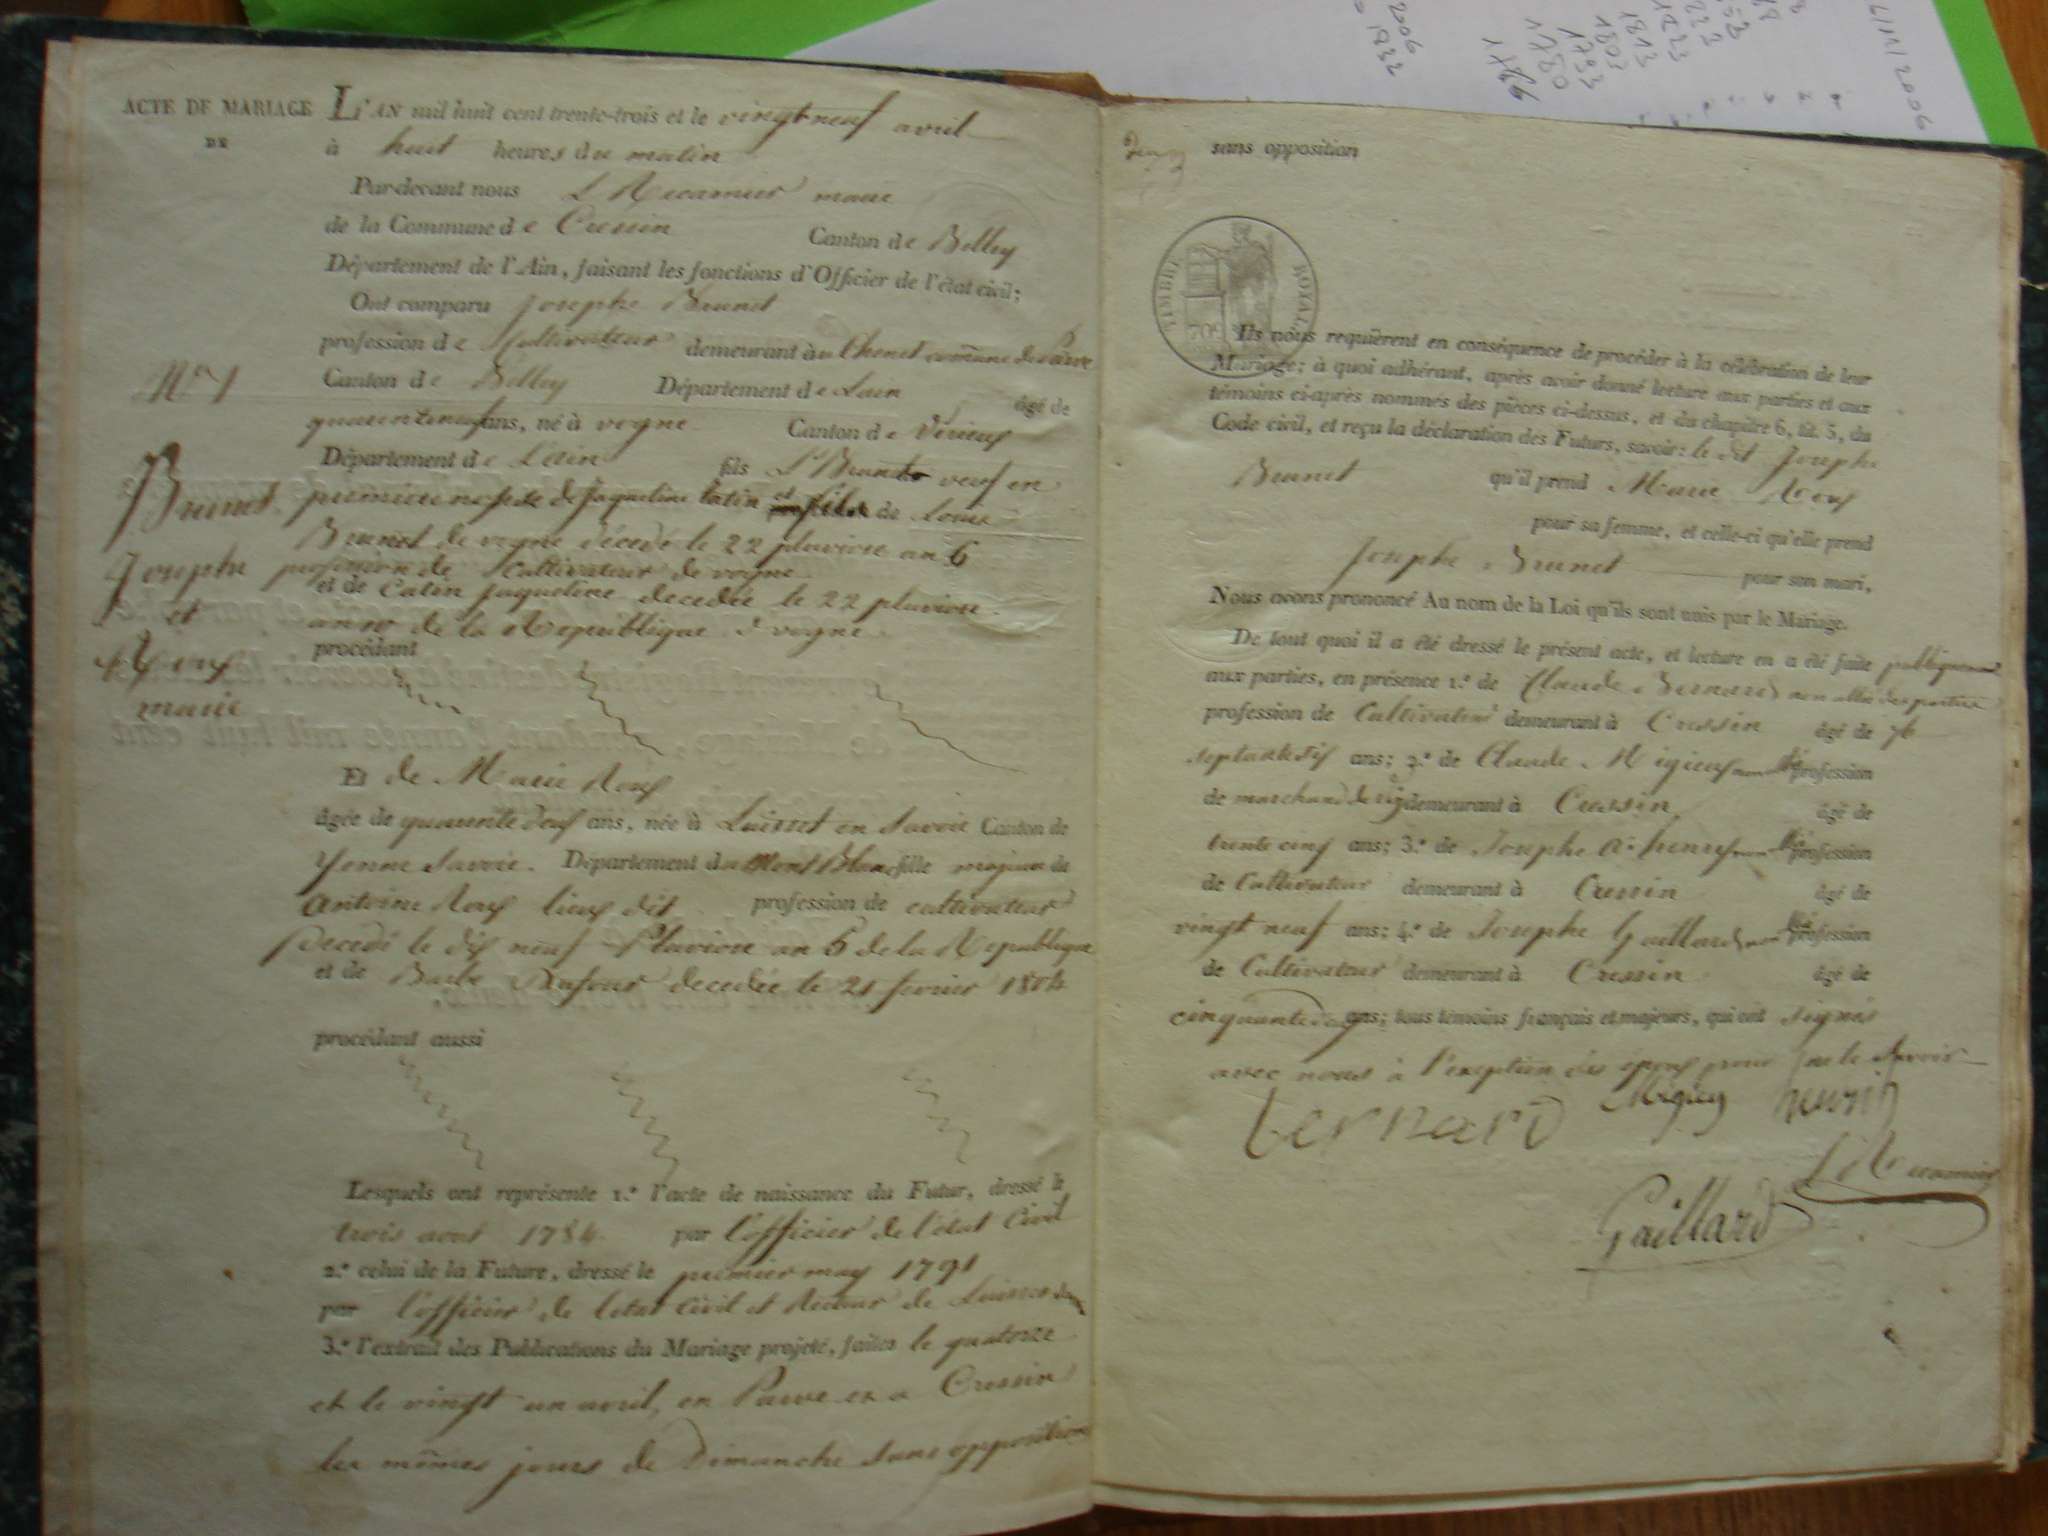 ACTE DE MARIAGE
DE
L'AN mil huit cent trente-trois et le vingt neuf avril
à huit heures du matin
Par-devant nous L Recamier maire
de la Commune de Cressin Canton de Belley
Département de l'Ain, faisant les fonctions d'Officier de l'état civil;
Ont comparu Josephe Brunet
profession de Cultivateur demeurant à Chenet commune de Parve
Canton de Belley Département de Lain âgé de
ans, né à vogne Canton de Virieux
Département de Leain fils Brunet veuf en
premiere nopse de Jaqueline Catin et fils de Louis
Brunet de vogne décédé le 22 pluviose an 6
profession de Cultivateur de vogne
et de Catin Jaqueline decedée le 22 pluviose
an 10 de la Republique à vogne
procédant
N° 1
Brunet
Josephe
et
Roux
marie
Et de Marie Roux
âgée de quarente deux ans, née à en Savoie Canton de
Yenne Savoie. Département du Mont Blanc fille majeure de
Antoine Roux profession de cultivateur
Decedé le dix neuf Pluviose an 6 de la Republique
et de Barbe Dufour decedée le 21 fevrier 1814
procédant aussi
Lesquels ont représenté 1.° l'acte de naissance du Futur, dressé le
trois aout 1784 par l'officier de l'état Civil
2.° celui de la Future, dressé le premier may 1791
par l'officier de letat Civil et Recteur de
3.° l'extrait des Publications du Mariage projeté, faites le quatorze
et le vingt un avril, en Parve et a Cressin
les mêmes jours de Dimanche sans opposition
sans opposition
TIMBRE ROYAL
70c
Ils nous requièrent en conséquence de procéder à la célébration de leur
Mariage; à quoi adhérant, après avoir donné lecture aux parties et aux
témoins ci-après nommés des pièces ci-dessus, et du chapitre 6, tit. 5, du
Code civil, et reçu la déclaration des Futurs, savoir: le dit Josephe
Brunet qu'il prend Marie Roux
pour sa femme, et celle-ci qu'elle prend
Josephe Brunet pour son mari,
Nous avons prononcé Au nom de la Loi qu'ils sont unis par le Mariage.
De tout quoi il a été dressé le présent acte, et lecture en a été faite publiquement
aux parties, en présence 1.° de Claude Bernard non allié des parties
profession de Cultivateur demeurant à Cressin âgé de 76
septante six ans; 2.° de Claude Migieux non allié profession
de marchand de demeurant à Cressin âgé de
trente cinq ans; 3.° de Josephe non allié profession
de Cultivateur demeurant à Cressin âgé de
vingt neuf ans; 4.° de Josephe Gaillard non allié profession
de Cultivateur demeurant à Cressin âgé de
cinquante ans; tous témoins français et majeurs, qui ont signés
avec nous à l'exeption des epoux pour ne le savoir
bernard Migieux
L Recamier
Gaillard
2006
1832
1786
1780
1793
1803
1813
1823
2006